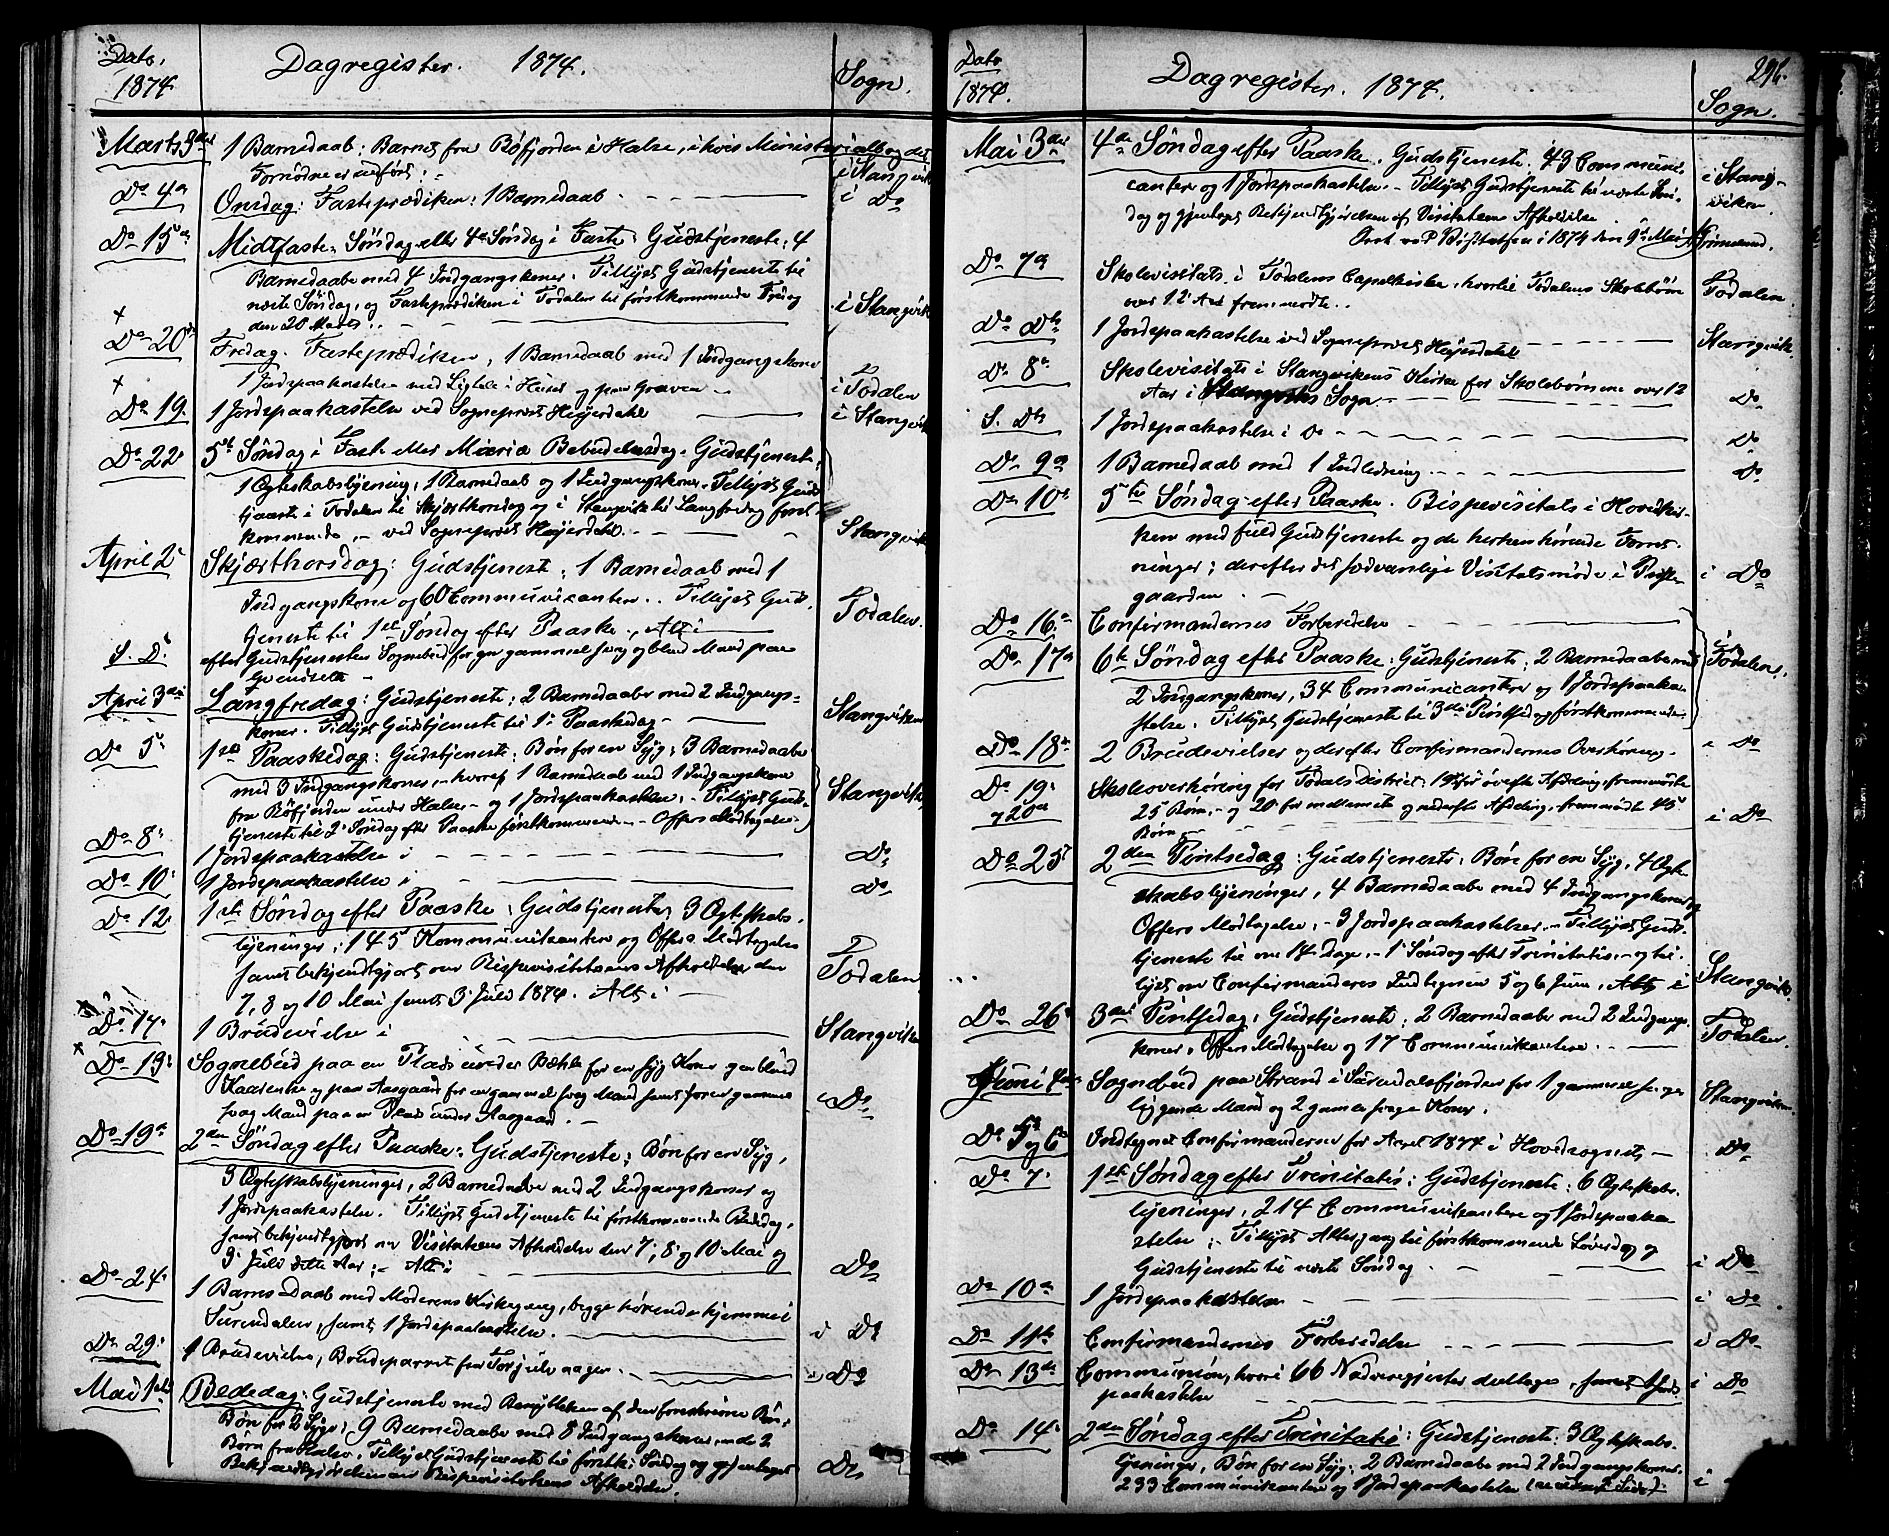 Dato. 1874. Dagregister. 1874. Sogn.
Marts 3die 1 Barnedaab: Barnet fra Bøfjorden i Halse, i hvis Ministerialbog det
Fornødne er indført. i Stangvik
Do 4de Onsdag: Fasteprædiken: 1 Barnedaab i Do
Do 15de Midtfaste Søndag eller 4de Søndag i Faste: Gudstjeneste: 4
Barnedaabe med 4 Indgangskoner. Tillyst Gudstjeneste til
næste Søndag, og Fasteprædiken i Todalen til førstkommende Fredag
den 20 Marts. i Stangvik
Do 20de Fredag. Fasteprædiken, 1 Barnedaab med 1 Indgangskone
1 Jordspaakastelse med Ligtale i Huset og paa Graven i Todalen
Do 19. 1 Jordspaakastelse ved Sogneprest Heyerdahl i Stangvik
Do 22. 5te Søndag i Faste eller Mariæ Bebudelsesdag. Gudstjeneste,
1 Ægteskabslysning, 1 Barnedaab og 1 Indgangskone. Tillyst Guds
tjeneste i Todalen til Skjærthorsdag og i Stangvik til Langfredag først-
kommende, ved Sogneprest Heyerdahl. Stangvik
April 2. Skjærthorsdag: Gudstjeneste: 1 Barnedaab med 1
Indgangskone og 60 Communicanter. Tillyst Guds-
tjeneste til 1ste Søndag efter Paaske. Alt i Todalen.
S. D. efter Gudstjenesten Sognebud for en gammel svag og blind Mand paa
Qvendset
April 3die Langfredag: Gudstjeneste: 2 Barnedaabe med 2 Indgangs-
koner. Tillyst Gudstjeneste til 1. Paaskedag Stangviken
Do 5. 1ste Paaskedag: Gudstjeneste: Bøn for en Syg: 3 Barnedaabe
med 3 Indgangskoner, hvoraf 1 Barnedaab med 1 Indgangskone
fra Bøfjorden under Halse og 1 Jordspaakastelse. Tillyst Guds-
tjeneste til 2. Søndag efter Paaske førstkommende. Offers Modtagelse. Stangvik
Do 8. 1 Jordspaakastelse i Do
Do 10. 1 Jordspaakastelse i Do
Do 12. 1ste Søndag efter Paaske. Gudstjeneste, 3 Ægteskabs-
lysninger, 145 Kommunikanter og Offers Modtagelse
samt bekjendtgjort om Bispevisitatsens Afholdelse den
7, 8 og 10 Mai samt 3. Juli 1874. Alt i Todalen
Do 17. 1 Brudevielse i Stangviken
Do 19. Sognebud paa en Plads under Bække for en syg Kone og en blind
Kaarenke og paa Aasgaard for en gammel svag Mand samt for en gammel
svag Mand paa en Plads under Aasgaard. i Do
Do 19de 2den Søndag efter Paaske: Gudstjeneste: Bøn for en Syg,
3 Ægteskabslysninger, 2 Barnedaabe med 2 Indgangskoner og
1 Jordspaakastelse. Tillyst Gudstjeneste til førstkommende Bededag,
samt bekjendtgjort om Visitatsens Afholdelse den 7, 8 og 10 Mai og
3. Juli dette Aar. Alt i Do
Do 24. 1 Barns Daab med Moderens Kirkegang, begge hørende hjemme i
Surendalen, samt 1 Jordspaakastelse. i Do
Do 29. 1 Brudevielse, Brudeparret fra i Do
Mai 1ste Bededag: Gudstjeneste med Benyttelsen af den foreskrevne Bøn,
Bøn for 2 Syge, 9 Barnedaabe med 8 Indgangskoner, 2
Børn fra Halse. Tillyst Gudstjeneste til førstk. Søndag og gjentaget
Bekjendtgjørelsen om Bispevisitatsens Afholdelse. Do
Dato 1874. Dagregister. 1874. Sogn. 296.
Mai 3die 4de Søndag efter Paaske. Gudstjeneste. 43 Communi-
canter og 1 Jordspaakastelse. Tillyst Gudstjeneste til næste Søn-
dag og gjentaget Bekjendtgjørelsen af Visitatsens Afholdelse. i Stangviken.
1874 den 9de Mai Grimelund.
Do 7de Skolevisitats i Todalens Capelkirke, hvortil Todalens Skolebørn
over 12 Aar fremmødte. Todalen
Do Ds 1 Jordspaakastelse ved Sogneprest Heyerdahl Stangvik
Do 8de Skolevisitats i Stangvikens Kirke for Skolebørnene over 12
Aar i Stangviks Sogn. Do
S. Ds 1 Jordspaakastelse i Do Do
Do 9de 1 Barnedaab med 1 Indledning. Do
Do 10de 5te Søndag efter Paaske. Bispevisitats i Hovedkir-
ken med fuld Gudstjeneste og de herhenhørende Forret-
ninger; derefter det sædvanlige Visitatsmøde i Præste-
gaarden. i Do
Do 16de Confirmandernes Forberedelse
Do 17de 6te Søndag efter Paaske: Gudstjeneste: 2 Barnedaabe med
2 Indgangskoner, 34 Communicanter og 1 Jordspaaka-
stelse. Tillyst Gudstjeneste til 3die Pintsedag førstkommende. i Todalen.
Do 18de 2 Brudevielser og derefter Confirmandernes Overhøring. i Do
Do 19. og 20de Skoleoverhøring for Todals District: 19de for øverste Afdeling, fremmødte
25 Børn, og 20 for mellemste og nederste Afdeling, fremmødte 45
Børn i Do
Do 25. 2den Pintsedag: Gudstjeneste: Bøn for en Syg, 4 Ægte-
skabslysninger, 4 Barnedaabe med 4 Indgangskoner og
Offers Modtagelse, 3 Jordspaakastelser. Tillyst Guds-
tjeneste til om 14 Dage, 1 Søndag efter Trinitatis, og til-
lyst om Confirmanderes Indtegnen 5 og 6 Juni. Alt i Stangvik.
Do 26. 3die Pintsedag: Gudstjeneste: 2 Barnedaabe med 2 Indgangs-
koner, Offers Modtagelse og 17 Communikantere. Todalen.
Juni 4de Sognebud paa Strand i Surendalsfjorden for 1 gammel senge-
liggende Mand og 2 gamle svage Koner. Stangviken
Do 5te og 6te Indtegnet Confirmanderne for Aaret 1874 i Hovedsognet Do
Do 7. 1ste Søndag efter Trinitatis: Gudstjeneste: 6 Ægteskabs-
lysninger, 214 Communikantere og 1 Jordspaaka-
stelse. Tillyst Altergang til førstkommende Løverdag og
Gudstjeneste til næste Søndag. i Do
Do 10de 1 Jordspaakastelse i Do
Do 11te Confirmandernes Forberedelse i Do
Do 13de Communion, hvori 66 Nadvergjester deeltage, samt 1 Jords-
paakastelse i Do
Do 14. 2den Søndag efter Trinitatis: Gudstjeneste. 3 Ægteskabs-
lysninger, Bøn for en Syg, 2 Barnedaabe med 2 Indgangskoner.
233 Communikantere og 1 Jordspaakastelse i